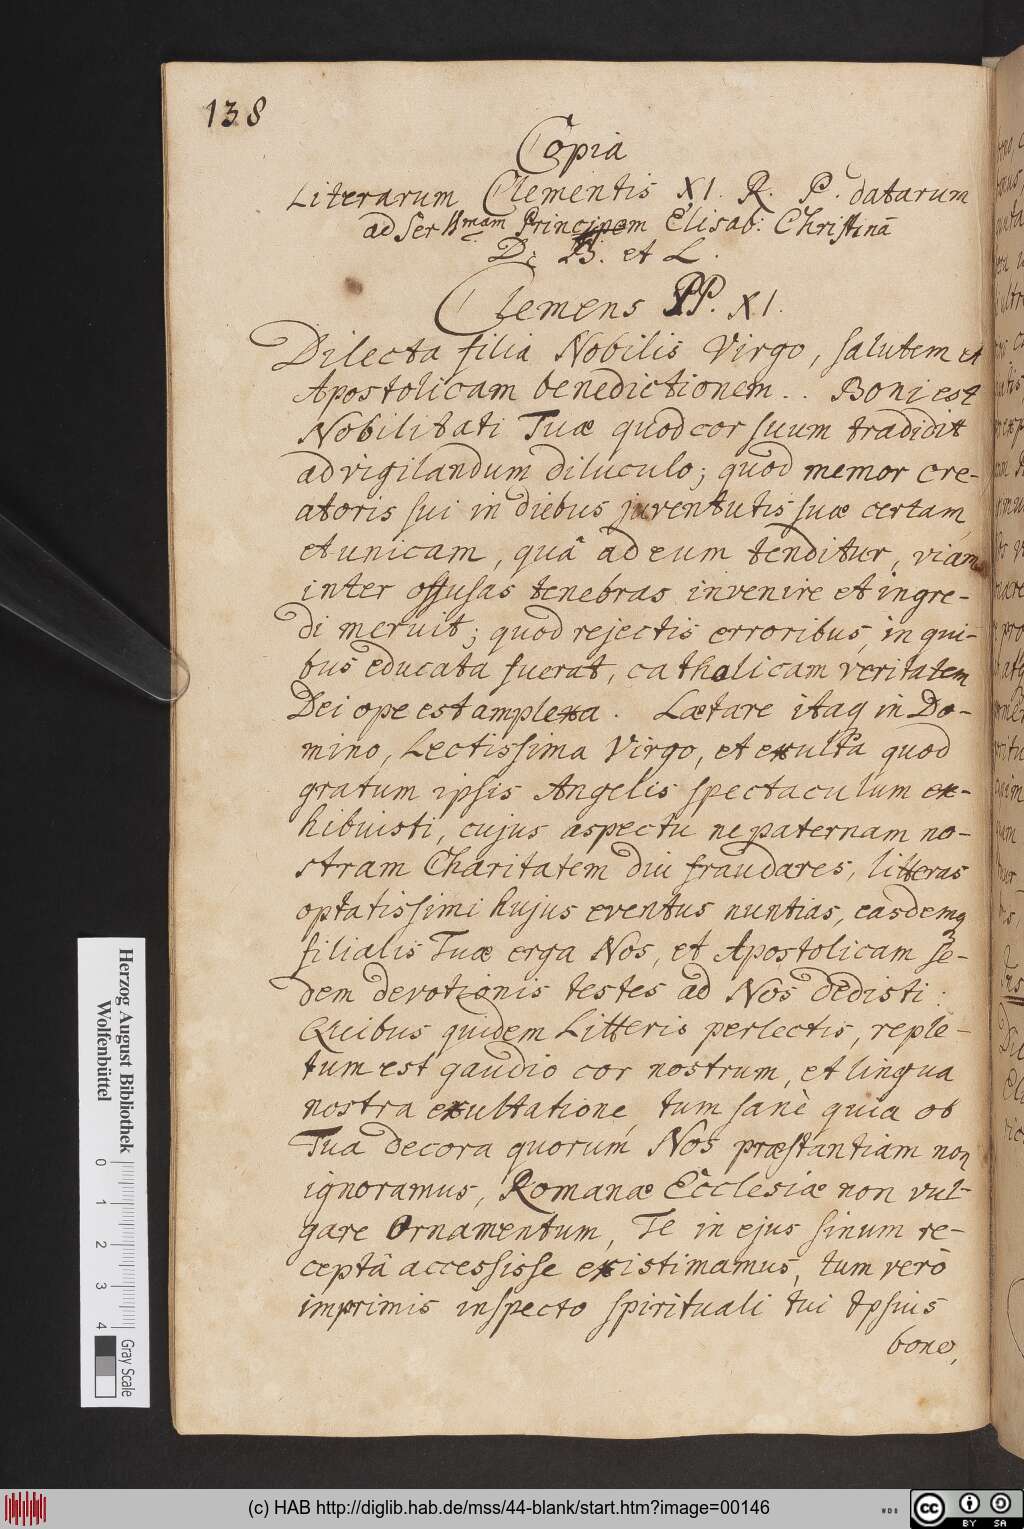 138
Copia
Literarum Clementis XI. R. P. datarum
ad Ser^mam Principem Elisab: Christinā
D: B. et L.
Clemens PP. XI.
Dilecta filia Nobilis Virgo, salutem et
Apostolicam benedictionem .. Boni est
Nobilitati Tuæ quod cor suum tradidit
ad vigilandum diluculo; quod memor cre-
atoris sui in diebus juventutis suæ certam,
et unicam, quâ ad eum tenditur, viam
inter offusas tenebras invenire et ingre-
di meruit; quod rejectis erroribus, in qui-
bus educata fuerat, catholicam veritatem
Dei ope est amplexa. Lætare itaq in Do-
mino, Lectissima Virgo, et exulta quod
gratum ipsis Angelis spectaculum ex-
hibuisti, cujus aspectu ne paternam no-
stram Charitatem diu fraudares, litteras
optatissimi hujus eventus nuntias, easdemq
filialis Tuæ erga Nos, et Apostolicam se-
dem devotionis testes ad Nos dedisti:
Quibus quidem Litteris perlectis, reple-
tum est gaudio cor nostrum, et lingua
nostra exultatione, tum sanè quia ob
Tua decora quorum Nos præstantiam non
ignoramus, Romanæ Ecclesiæ non vul-
gare Ornamentum, Te in ejus sinum re-
ceptâ accessisse existimamus, tum verò
imprimis inspecto spirituali tui ipsius
bono,
Herzog August Bibliothek
Wolfenbüttel
0 1 2 3 4
Gray Scale
(c) HAB http://diglib.hab.de/mss/44-blank/start.htm?image=00146
WDB
cc
BY SA